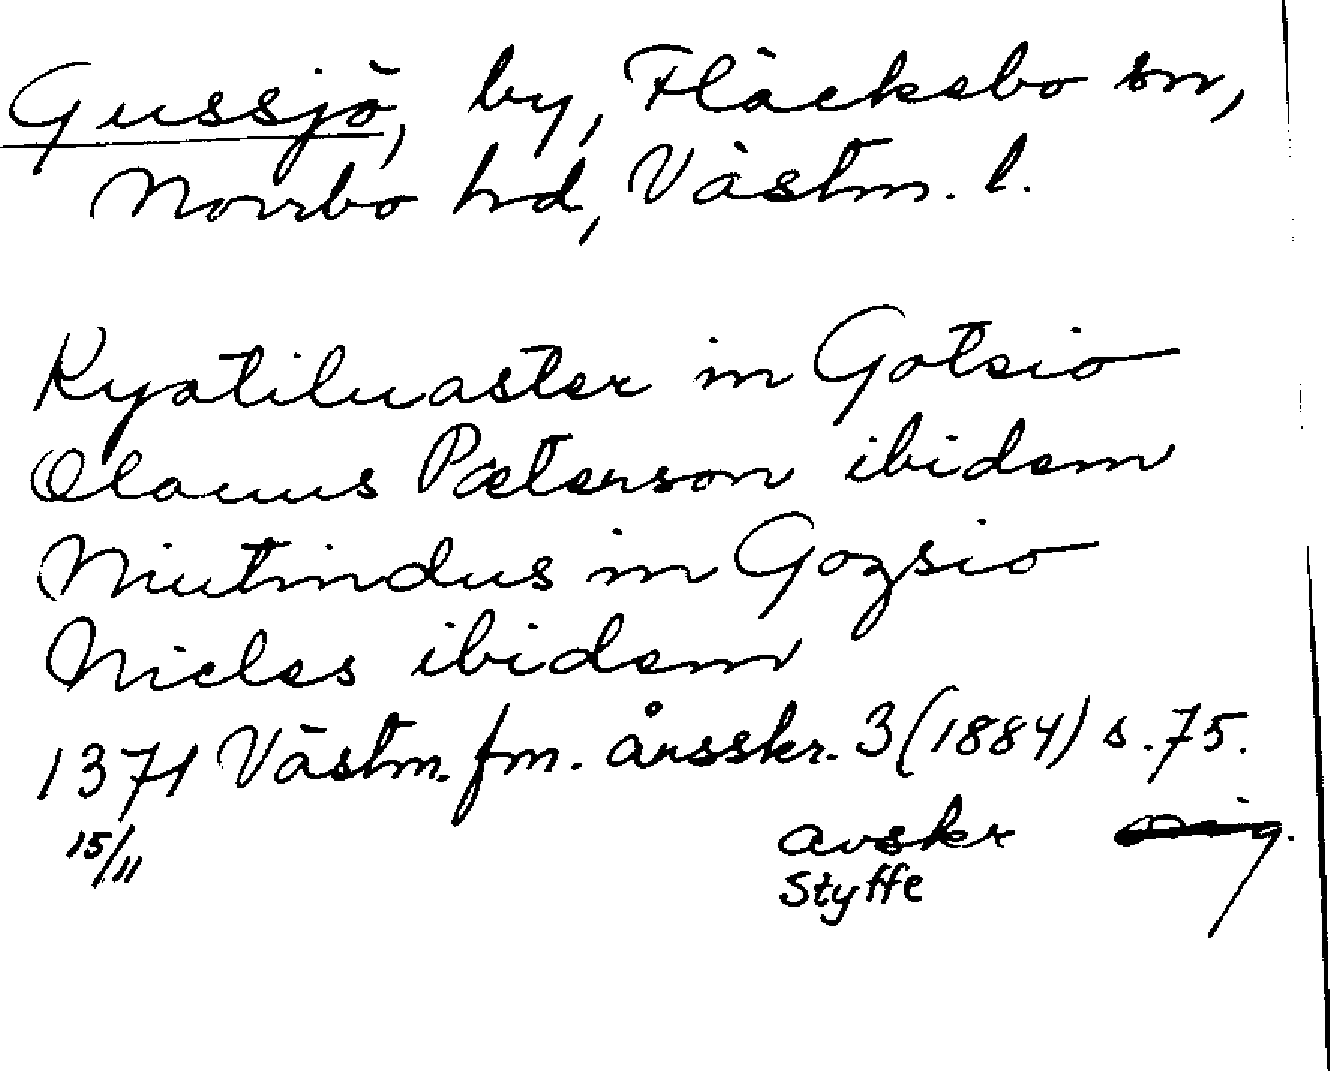 Gussjö, by, Fläckebo sn,
Norrbo hd, Västm. l.
Kyætiluaster in Gotsio
Olauus Pæterson ibidem
Niutindus in Gozsio
Nicles ibidem
1371 Västm. fm. årsskr. 3 (1884) s. 75.
15/11 avskr
Styffe